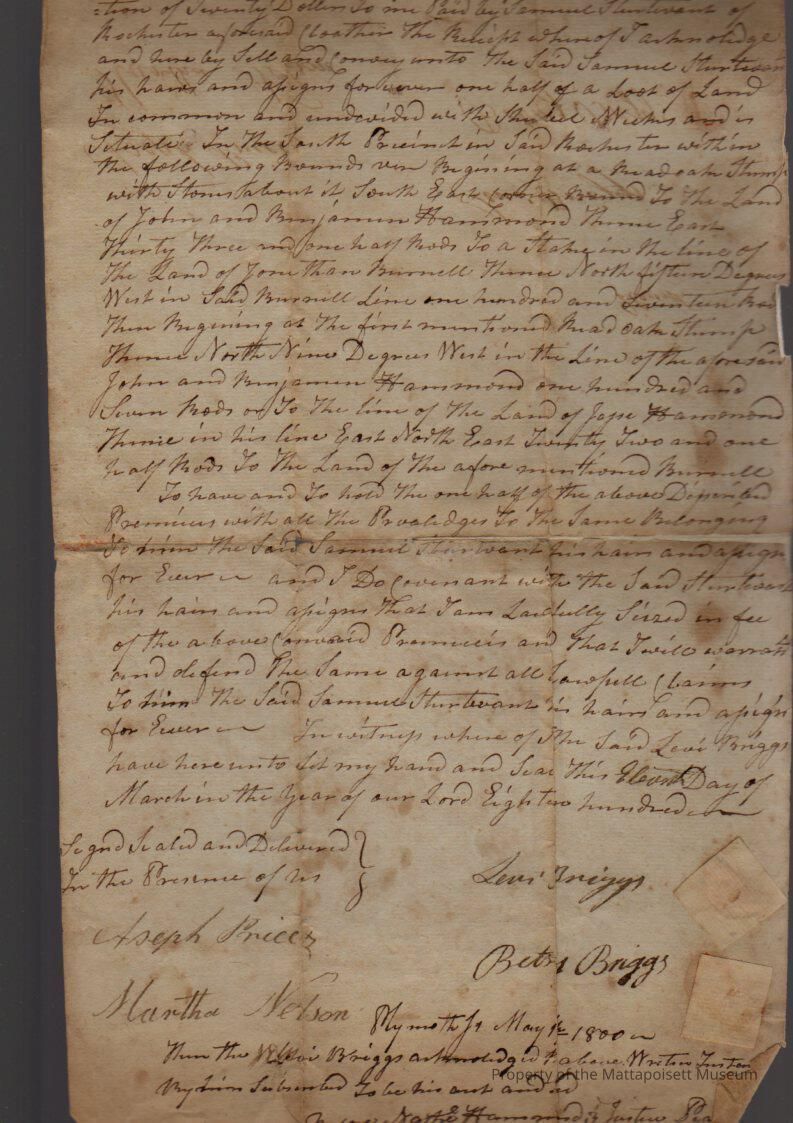 tion of Twenty Dollers to me Paid by Samuel Sturtevant of
Rochester aforesaid the Receipt whereof I acknolidge
and here by Sell and Convey unto The Said Samuel Sturtevant
his hairs and asigns for ever one half of a Loot of Land
In common and undevided with and is
Situate In The South Precinct in Said Rochester with in
the following Bounds Begining at a Read oak Stump
with Stons about it South East Corner Bound To The Land
of John and Binjamin Hammond Thence East
Thirty Three and one half Rods To a Stake in the line of
The Land of Jonethan Burnell Thence North fifteen Degrees
West in Said Burnell Line one hundred and Seventeen Rod
Then Begining at The first mentioned Read oak Stump
Thence North Nine Degrees West in the Line of the aforesaid
John and Binjamin Hammond one hundred and
Seven Rods or To The line of The Land of Jesse Hammond
Thence in his line East North East Twenty Two and one
half Rods To The Land of The afore mentioned Burnell
To have and To hold The one half of the above Discribed
Premices with all The Privaledges To The Same Belonging
To him The Said Samuel Sturtevant his hairs and asigns
for Ever and I Do Covenant with The Said Sturtevant
his hairs and asigns That I am Lawfully Sized in fee
of the above Convaid Premiceis and That I will warrant
and defend The Same against all Lawfull Claims
To him The Said Samuel Sturtevant his hairs and asigns
for Ever In witness where of I the Said Levi Briggs
have here unto Set my hand and Seal This Elevnth Day of
March in the year of our Lord Eighteen hundred
Segnd Sealed and Delivered
In the Presence of us
Levi Briggs
Aseph Price
Betsy Briggs
Martha Nelson
Plymoth Ss May 1800
Then the Levi Briggs acknolidged above Writen
By him Subscribed To be his act and
Hammond Justice Pea
Property of the Mattapoisett Museum